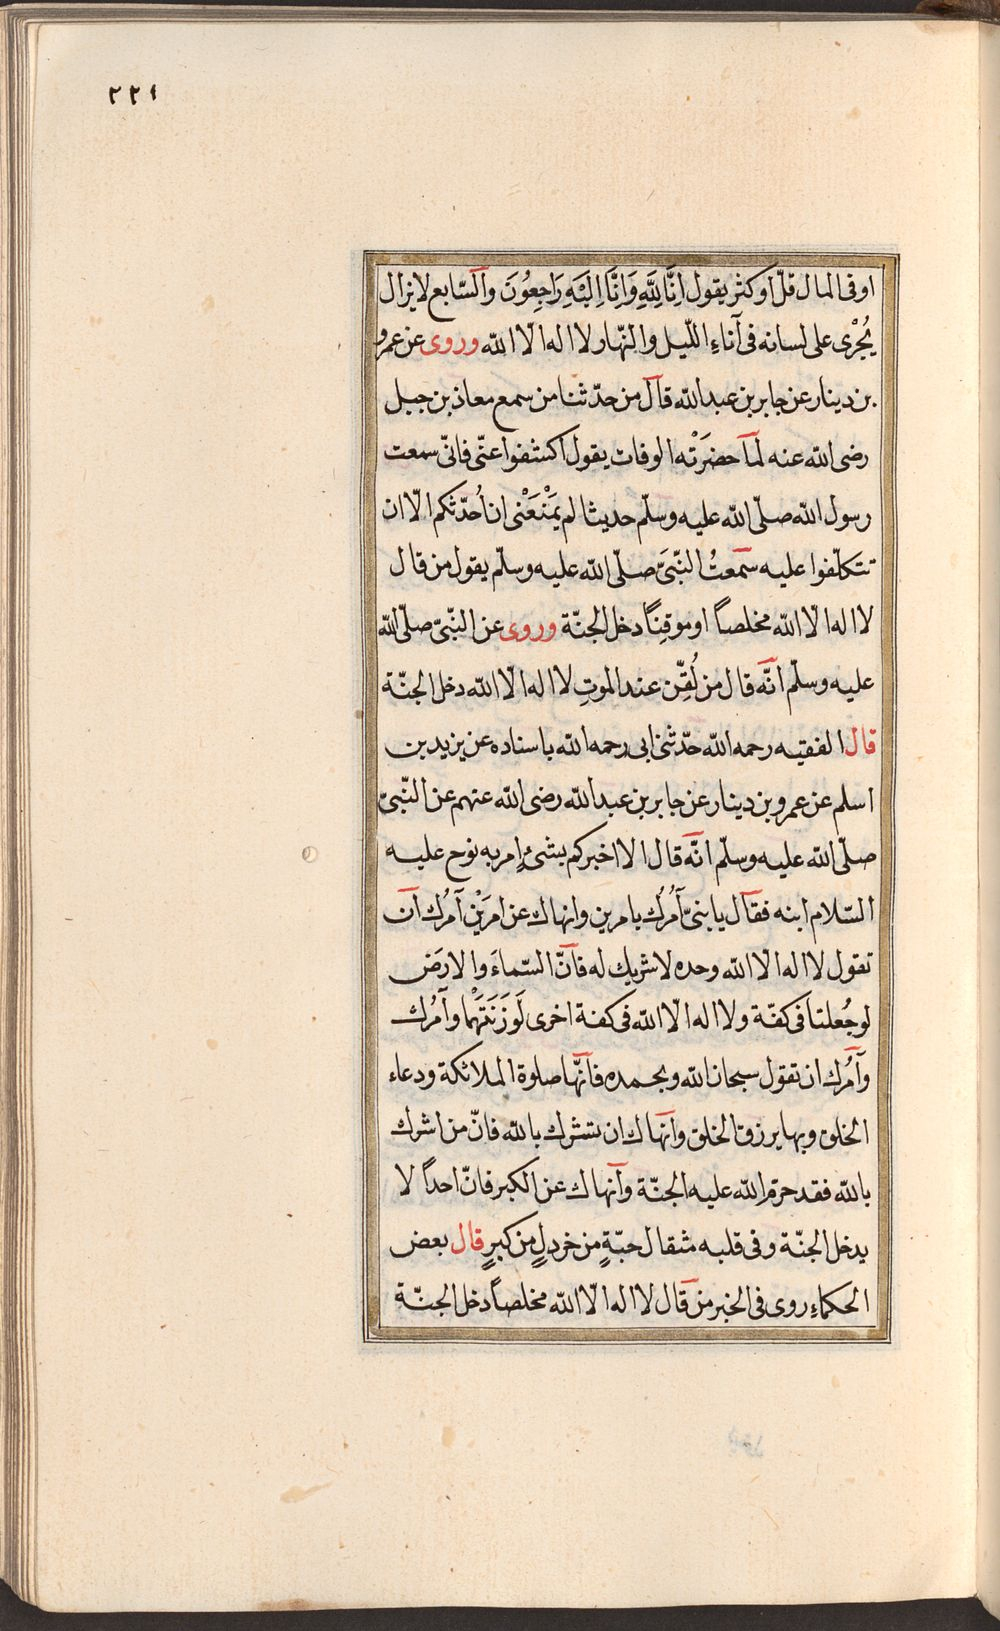 ٢٢١
اوفى المال قلّ او كثر يقول اِنَّا لِلّٰهِ وَاِنَّا اِلَيْهِ رَاجِعُونَ والسّابع لا يزال
يُجْرى على لسانه فى آناءِ اللّيل والنّهار لا اله الّا اللّه وروى عن عمرو
بن دينار عن جابر بن عبد اللّه قال من حدّثنا من سمع معاذ بن جبل
رضى اللّه عنه لما حضَرَتْه الوفات يقول اكشفوا عنّى فانّى سمعت
رسول اللّه صلّى اللّه عليه وسلّم حديثا لم يَمْنَعْنى ان اُحدّثكم الّا ان
تتكلّفوا عليه سمعتُ النّبىَّ صلّى اللّه عليه وسلّم يقول من قال
لا اله الّا اللّه مخلصاً او موقِنًا دخل الجنّة وروى عن النّبىّ صلّى اللّه
عليه وسلّم انّه قال من لُقِّن عند الموتِ لا اله الّا اللّه دخل الجنّة
قال الفقيه رحمه اللّه حدّثنى ابى رحمه اللّه باسناده عن يزيد بن
اسلم عن عمرو بن دينار عن جابر بن عبد اللّه رضى اللّه عنهم عن النّبىّ
صلّى اللّه عليه وسلّم انّه قال الا اخبركم بشئٍ امر به نوح عليه
السّلام ابنه فقال يا بنىّ آمُرُك بامرين وانهاك عن امرَيْن آمُرك ان
تقول لا اله الّا اللّه وحده لا شريك له فانّ السّماءَ والارَض
لو جُعلتا فى كفّة ولا اله الّا اللّه فى كفة اخرى لَوَزَنَتْهُما وآمُرك
وآمُرك ان تقول سبحان اللّه وبحمده فانّها صلوة الملائكة ودعاء
الخلق وبها يرزق الخلق وانهاك ان تشرك باللّه فانّ من اشرك
باللّه فقد حرّم اللّه عليه الجنّة وانهاك عن الكبر فانّ احداً لا
يدخل الجنّة وفى قلبه مثقال حبّةٍ من خردلٍ من كبرٍ قال بعض
الحكماءِ روى فى الخبر من قال لا اله الّا اللّه مخلصاً دخل الجنّة